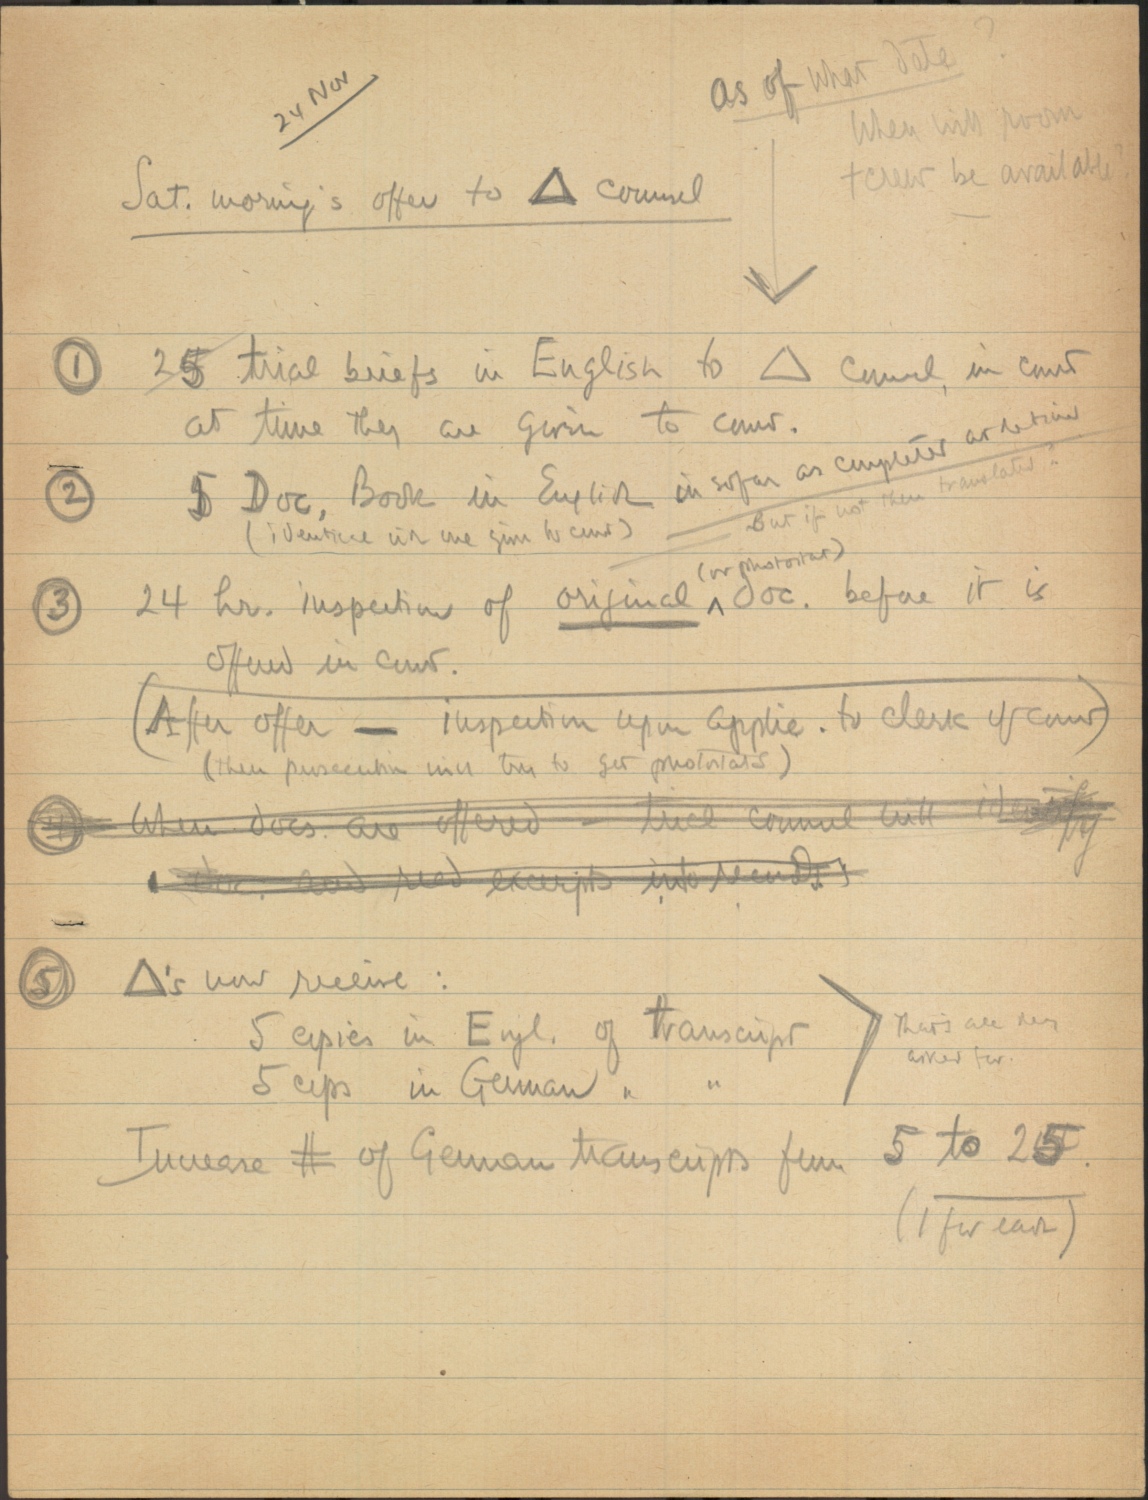 24 Nov
as of what date?
When will room
+ crew be available?
Sat. morning's offer to Δ counsel
① 25 trial briefs in English to Δ counsel, in court
at time they are given to court.
② 5 Doc. Book in English insofar as completed at that time
(identical with one given to court)
But if not then translated?
③ 24 hr. inspection of original ^ doc. before it is
(or photostat)
offered in court.
(After offer — inspection upon applic. to clerk of court)
(then prosecution will try to get photostats)
④ When docs. are offered - trial counsel will identify
doc. and read excerpts into record
⑤ Δ's now receive:
5 copies in Engl. of transcript
5 cops in German " "
That's all they
asked for.
Increase # of German transcripts from 5 to 25.
(1 for each)